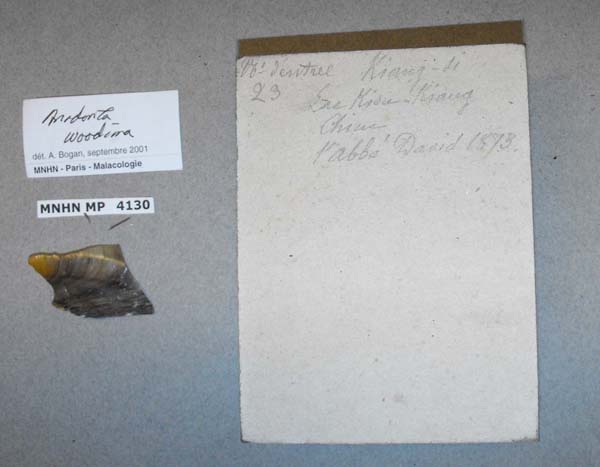 Anodonta
woodiana
dét. A. Bogan, septembre 2001
MNHN - Paris - Malacologie
MNHN MP 4130
No d'entrée Kiang-si
23
Kiou-Kiang
Chine
l'abbé David 1873.